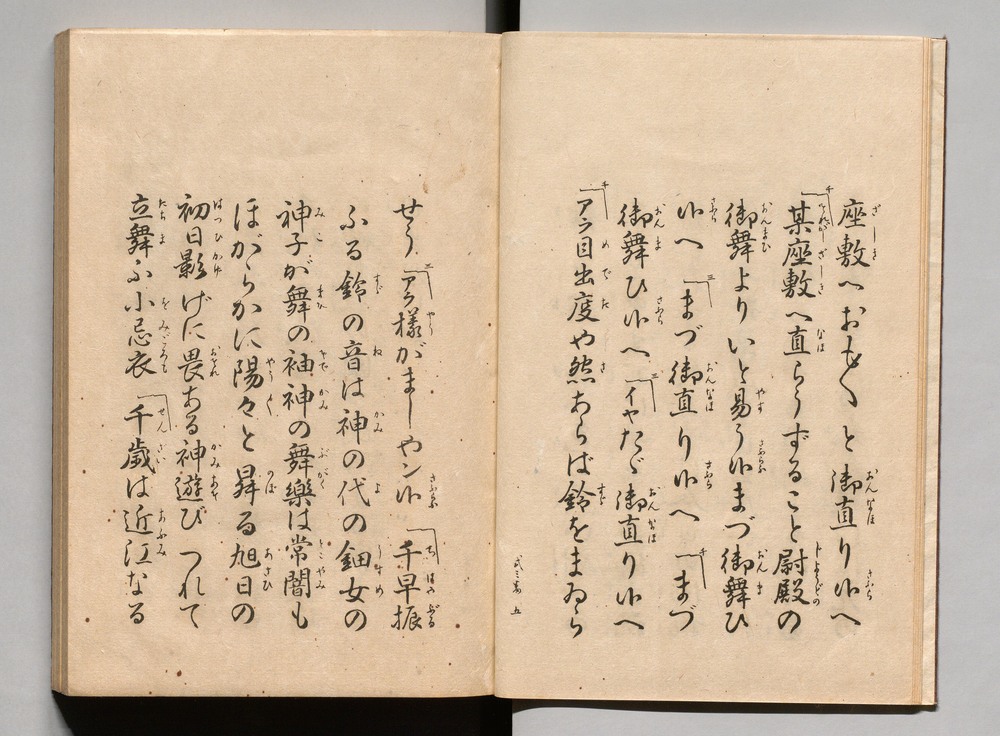 座敷へおも〱と御直り候へ
某座敷へ直らうずること尉殿の
御舞よりいと易う候まづ御舞ひ
候へ まづ御直り候へ まづ
御舞ひ候へ イヤたゞ御直り候へ
アラ目出度や然あらば鈴をまゐら
式三番 五
せう アラ様がましやン候 千早振
ふる鈴の音は神の代の鈿女の
神子が舞の袖神の舞樂は常闇も
ほがらかに陽々と昇る旭日の
初日影げに畏ある神遊びつれて
立舞ふ小忌衣 千歳は近江なる